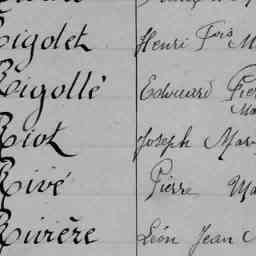 Rigolet Henri Fois M
Rigollé Edouard Pier
Ma
Riot Joseph Mar
Rivé Pierre Ma
Rivière Léon Jean